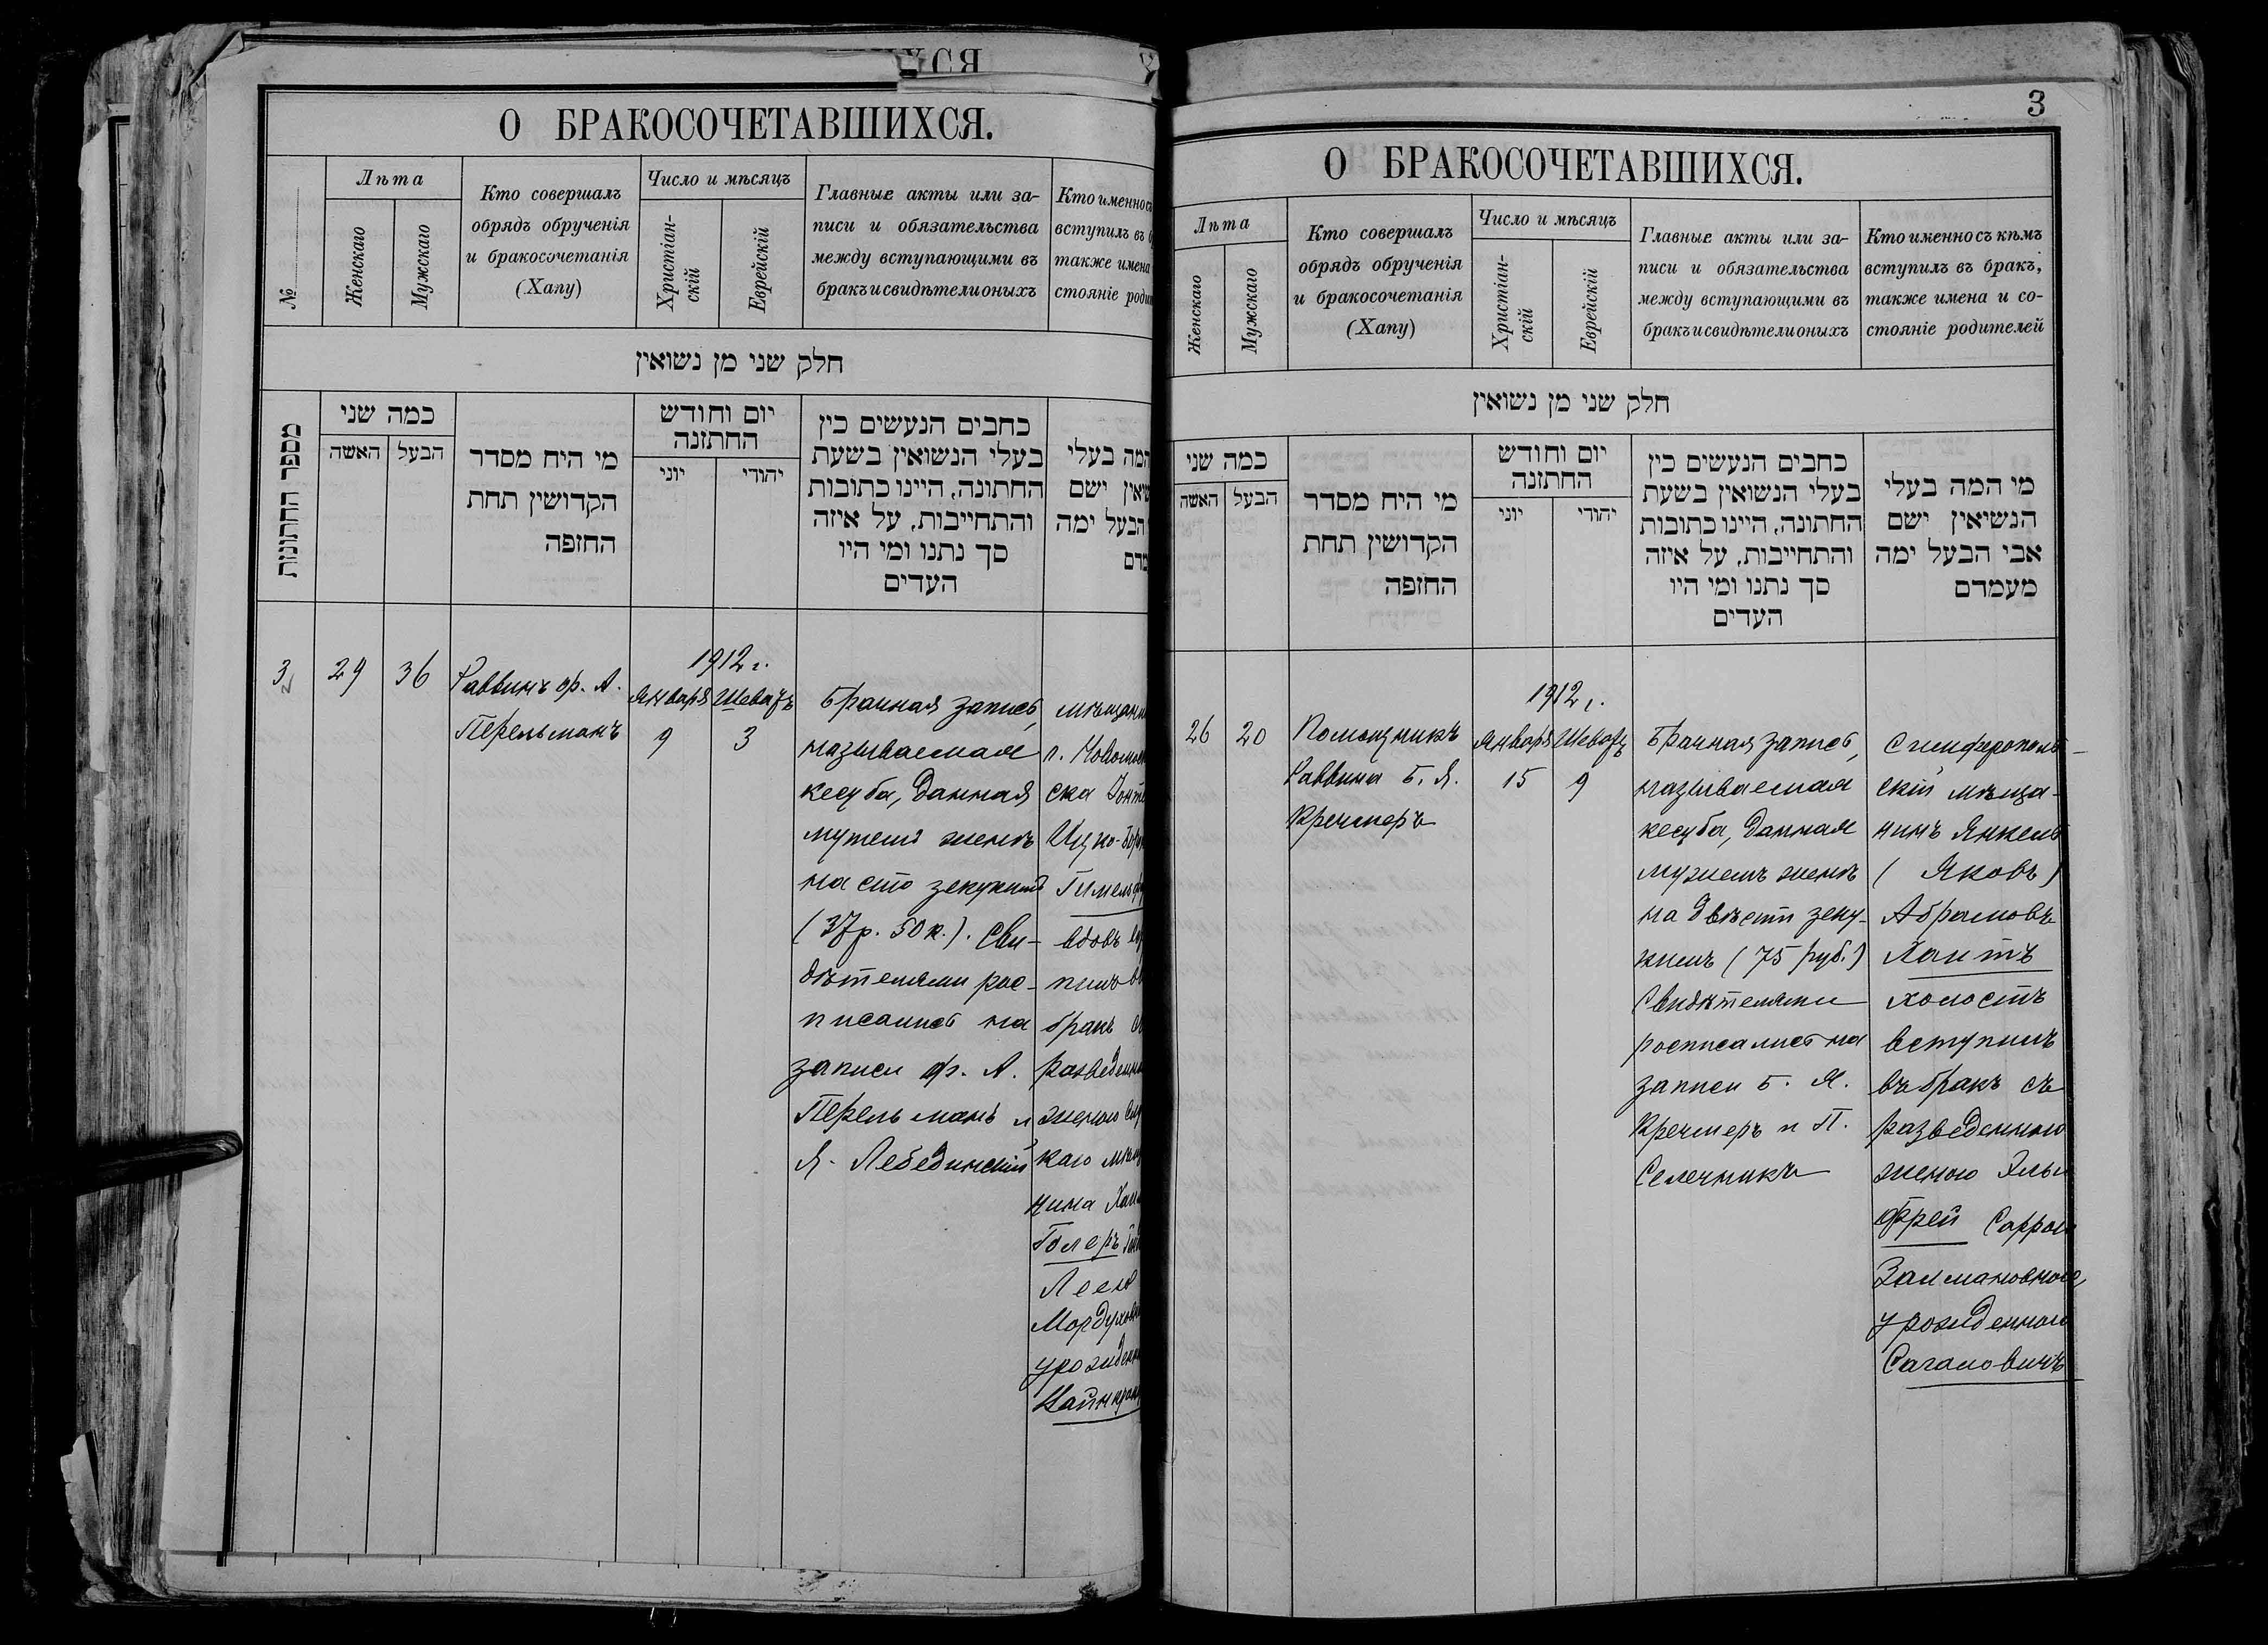 3
О БРАКОСОЧЕТАВШИХСЯ.
№
Лѣта
Женскаго
Мужскаго
Кто совершалъ
обрядъ обрученія
и бракосочетанія
(Хапу)
Число и мѣсяцъ
Христіан-
скій
Еврейскій
Главные акты или за-
писи и обязательства
между вступающими въ
бракъ и свидѣтели оныхъ
Кто именно
вступилъ въ
также имена
стояніе
חלק שני מן נשואין
מספר החתונות
כמה שני
האשה
הבעל
מי היח מסדר
הקדושין תחת
החופה
יום וחודש
החתונה
יוני
יהודי
כחבים הנעשים כין
בעלי הנשואין בשעת
החתונה, היינו כתובות
והתחייבות, על איזה
סך נתנו ומי היו
העדים
המה בעלי
ישם
הבעל ימה
3
29
36
Раввинъ Ф. А.
Перельманъ
1912 г.
Января Шеватъ
9 3
Брачная запись,
называемая
кесуба, данная
мужемъ женѣ
на сто зекукимъ
(37 р. 50 к.). Сви-
дѣтелями рос-
писались на
записи Ф. А.
Перельманъ и
Я. Лебединскій
г.
ска
вдовъ
бракъ
женою
нина
Голеръ
Леею
О БРАКОСОЧЕТАВШИХСЯ.
Лѣта
Женскаго
Мужскаго
Кто совершалъ
обрядъ обрученія
и бракосочетанія
(Хапу)
Число и мѣсяцъ
Христіан-
скій
Еврейскій
Главные акты или за-
писи и обязательства
между вступающими въ
бракъ и свидѣтели оныхъ
Кто именно съ кѣмъ
вступилъ въ бракъ,
также имена и со-
стояніе родителей
חלק שני מן נשואין
כמה שני
האשה
הבעל
מי היח מסדר
הקדושין תחת
החופה
יום וחודש
החתונה
יוני
יהודי
כחבים הנעשים כין
בעלי הנשואין בשעת
החתונה, היינו כתובות
והתחייבות, על איזה
סך נתנו ומי היו
העדים
מי המה בעלי
הנשיאין ישם
אבי הבעל ימה
מעמדם
26
20
Помощникъ
Раввина Б. Я.
Кречмеръ
1912 г.
Января Шеватъ
15 9
Брачная запись,
называемая
кесуба, данная
мужемъ женѣ
на двѣсти зеку-
кимъ (75 руб.)
Свидѣтелями
росписались на
записи Б. Я.
Кречмеръ и П.
Селечникъ
Симферополь-
скій мѣща-
нинъ Янкель
(Яковъ)
Абрамовъ
Лантъ
холостъ
вступилъ
въ бракъ съ
разведенною
женою Эльи
Фрей Саррою
Залмановною,
урожденною
Сагаловичъ